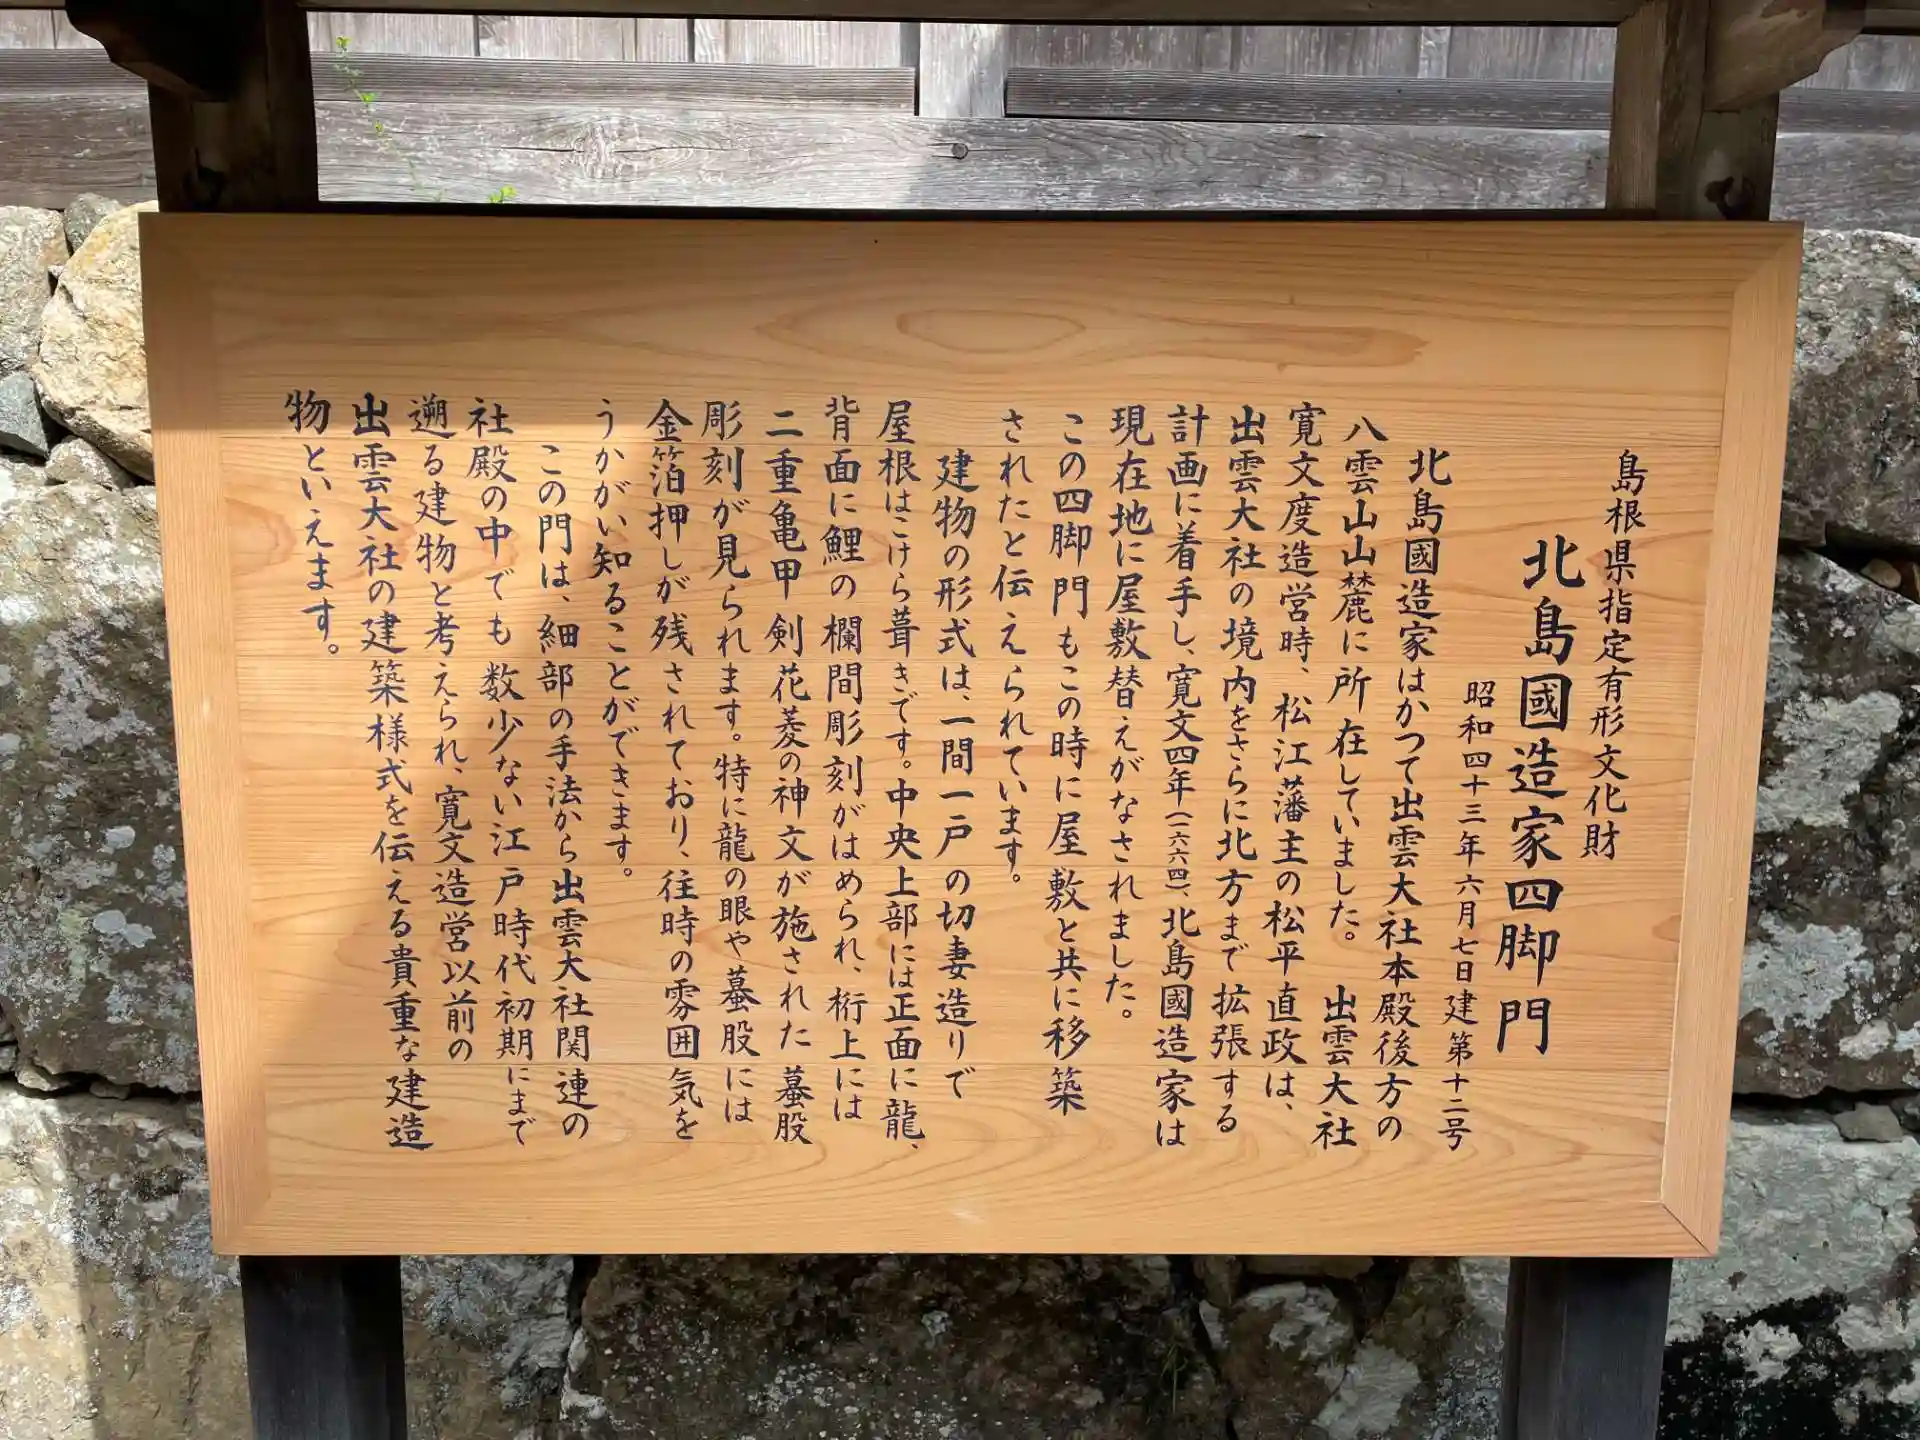 島根県指定有形文化財
北島國造家四脚門
昭和四十三年六月七日建第十二号
北島國造家はかつて出雲大社本殿後方の
八雲山山麓に所在していました。出雲大社
寛文度造営時、松江藩主の松平直政は、
出雲大社の境内をさらに北方まで拡張する
計画に着手し、寛文四年(一六六四)、北島國造家は
現在地に屋敷替えがなされました。
この四脚門もこの時に屋敷と共に移築
されたと伝えられています。
建物の形式は、一間一戸の切妻造りで
屋根はこけら葺きです。中央上部には正面に龍、
背面に鯉の欄間彫刻がはめられ、桁上には
二重亀甲剣花菱の神文が施された蟇股
彫刻が見られます。特に龍の眼や蟇股には
金箔押しが残されており、往時の雰囲気を
うかがい知ることができます。
この門は、細部の手法から出雲大社関連の
社殿の中でも数少ない江戸時代初期にまで
遡る建物と考えられ、寛文造営以前の
出雲大社の建築様式を伝える貴重な建造
物といえます。